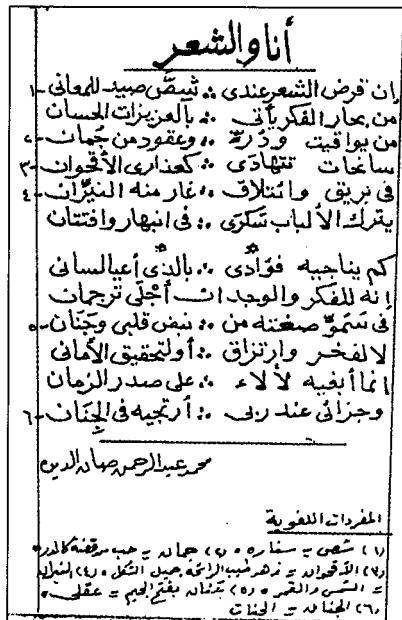 أنا والشعر
إن قرض الشعر عندى ∴ شِصُّ صيد للمعانى -١
من بحار الفكر يأتى ∴ بالعزيزات الحسان
من يواقيت ودُرّة ∴ وعقود من جُمان -٢
سابحات تتهادَى ∴ كعذارى الأقحوان -٣
فى بريق وائتلاف ∴ غار منه النيّران -٤
يترك الألباب سَكرَى ∴ فى انبهار وافتتان
كم يناجيه فؤادى ∴ بالذى أعيا لسانى
إنه للفكر والوجدان أجْلَى ترجمان
فى سموّ صغته من ∴ نبض قلبى وجَنَان -٥
لا لفخر وارتزاق ∴ أو لتحقيق الأمانى
إنما أبغيه لألاء ∴ على صدر الزمان
وجزائى عند ربى ∴ أرتجيه فى الجِنَان -٦
محمد عبد الرحمن صان الدين
المفردات اللغوية
(١) شص = سنارة (٢) جمان = حب من فضة كالدرة
(٣) الأقحوان = زهر طيب الرائحة جميل الشكل (٤) النيران
= الشمس والقمر (٥) جَنان بفتح الجيم = عقلى
(٦) الجنان = الجنات